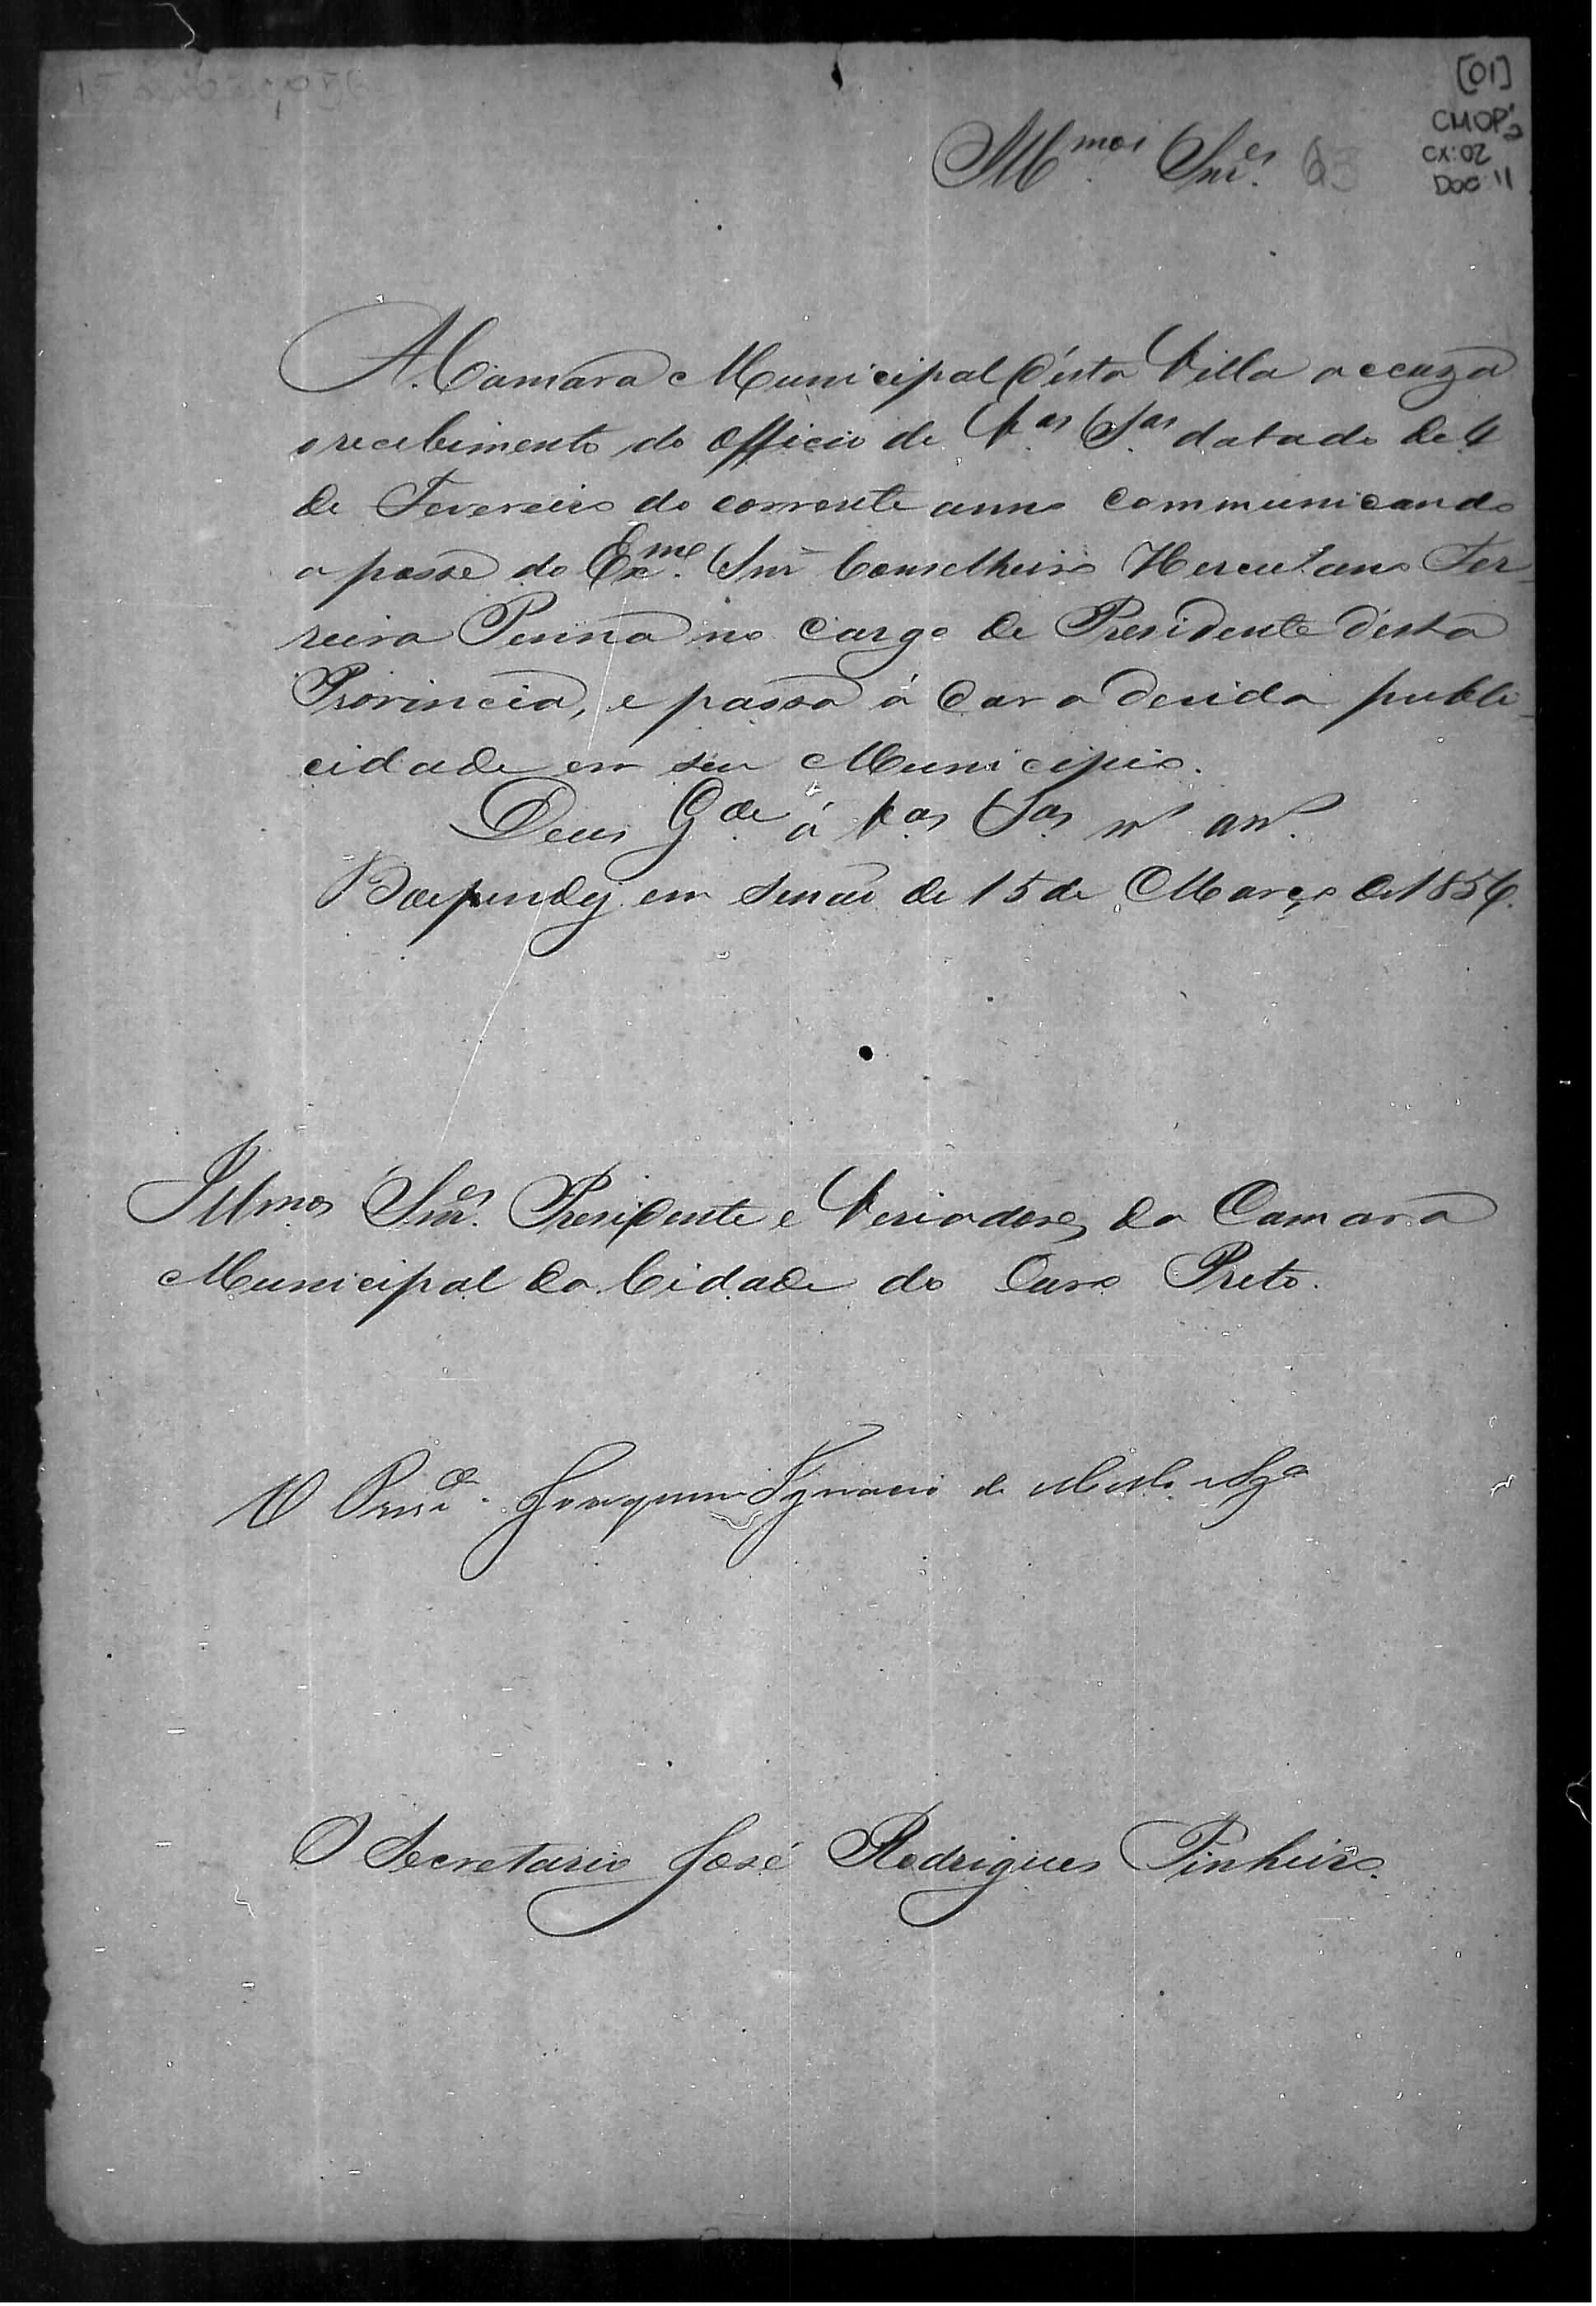 [01]
CMOP
CX: 02
DOC 11
Illmos Snres 63
A Camara Municipal d'esta Villa accuza
o recebimento do officio de Vas Sas datado de 4
de Fevereiro do corrente anno communicando
a posse do Exmo Snr Conselheiro Herculano Fer-
reira Penna no cargo de Presidente d'esta
Provincia, e passa á dar a devida publi-
cidade em seu Municipio.
Deus Gde á Vas Sas ms ans.
Baependy em sessão de 15 de Março de 1856.
Illmos Snres Presidente e Veriadores da Camara
Municipal da Cidade do Ouro Preto.
O Preside Joaquim Ignacio de Mello
O Secretario José Rodrigues Pinheiro.